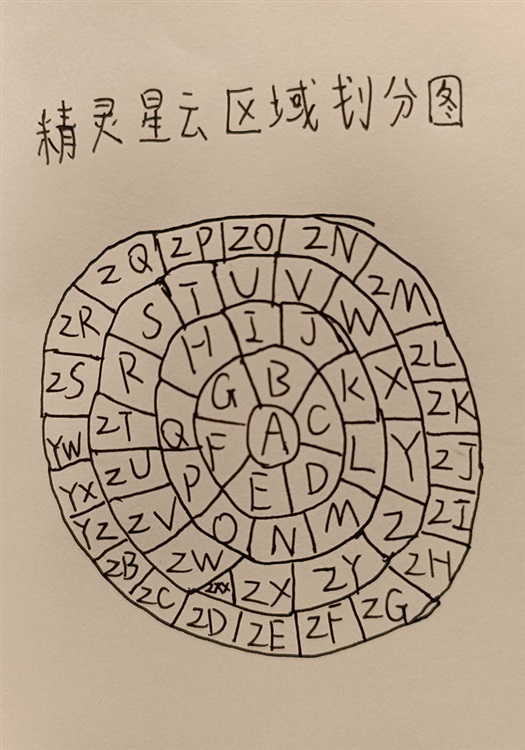 精灵星云区域划分图
ZQ ZP ZO ZN
ZR S T U V W ZM
H I J
ZS R G B K X ZL
ZK
ZT Q F A C L Y ZJ
YW
ZU P E D ZI
YX
YZ ZV O N M Z
ZB ZW ZX ZY ZH
ZC ZD ZE ZF ZG